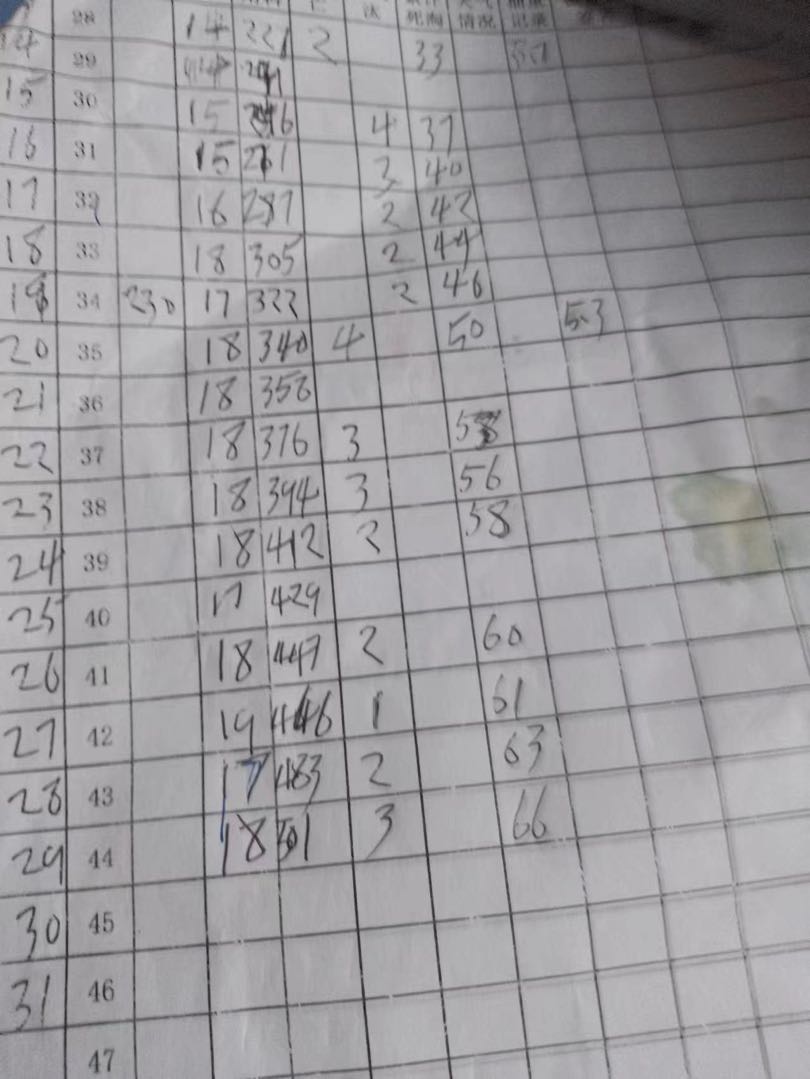 死淘 情况 记录
28 14 221 2
14 29 33
15 30 15
16 31 15 261 4 37
17 32 16 287 3 40
18 33 18 305 2 42
19 34 230 17 322 2 44
20 35 18 340 4 2 46
21 36 18 358 50 53
22 37 18 376 3
23 38 18 394 3 56
24 39 18 412 2 58
25 40 17 429
26 41 18 447 2 60
27 42 19 446 1 61
28 43 17 483 2 63
29 44 18 501 3 66
30 45
31 46
47